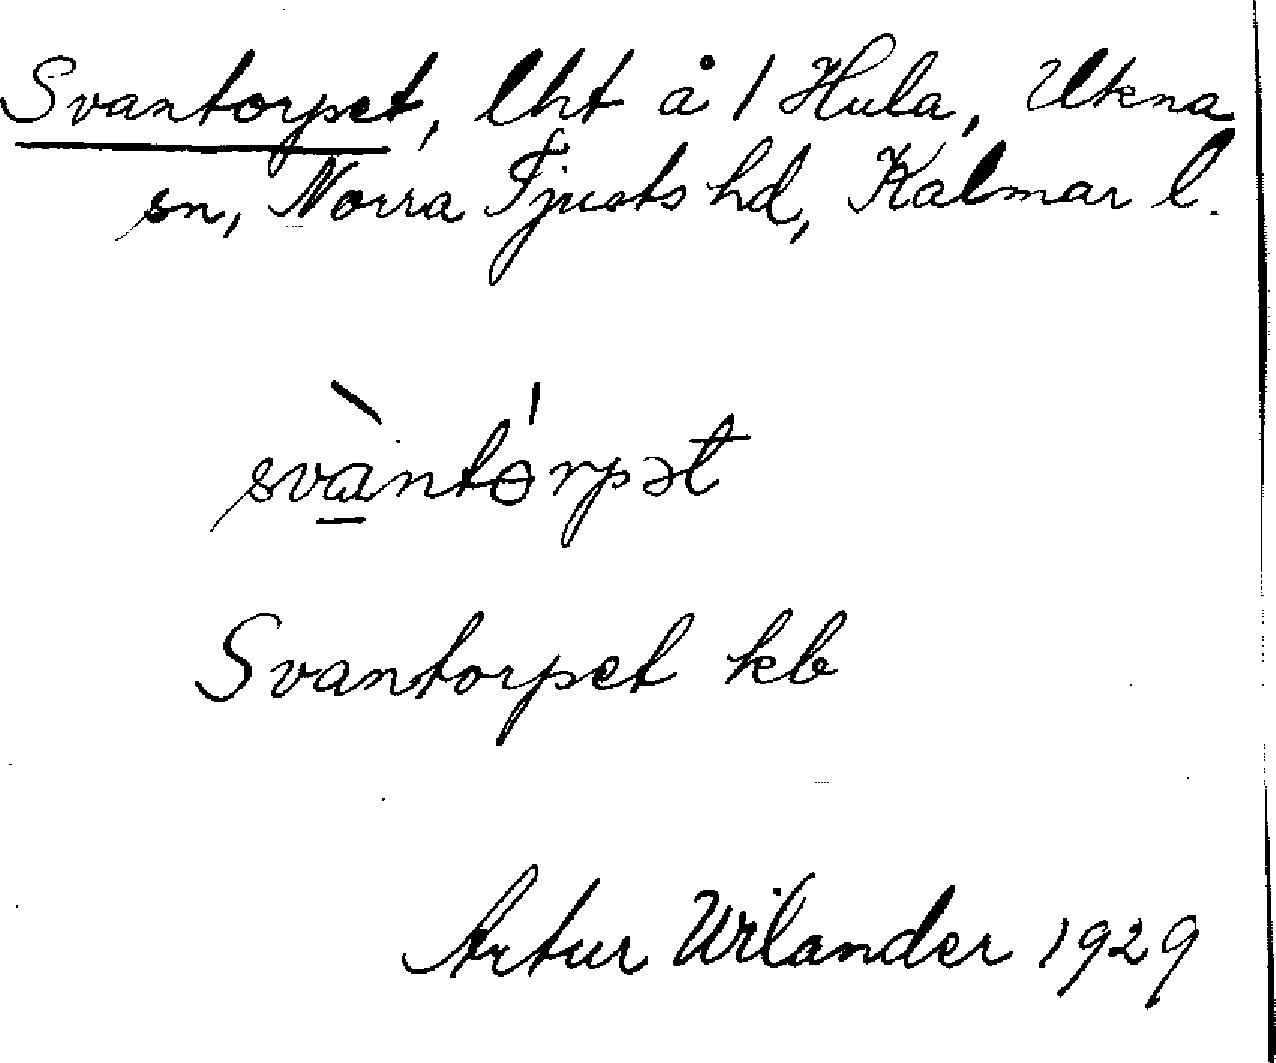 Svantorpet, lht å 1 Hula, Ukna
sn, Norra Tjusts hd, Kalmar l.
svà̱ntɵ́rpət
Svantorpet kb
Artur Wilander 1929